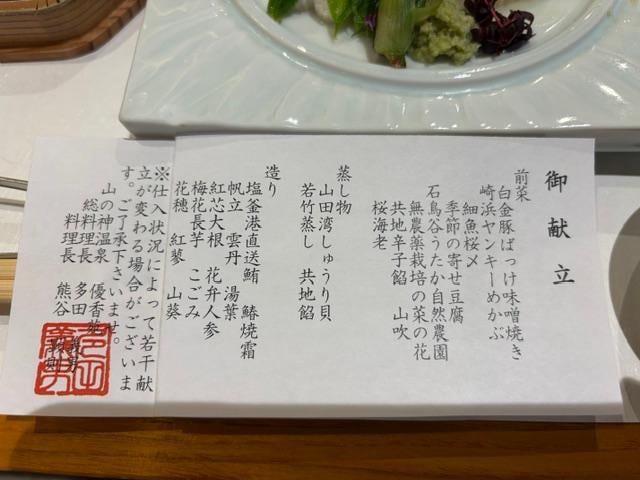 御献立
前菜
白金豚ばっけ味噌焼き
崎浜ヤンキーめかぶ
細魚桜〆
季節の寄せ豆腐
石鳥谷うたか自然農園
無農薬栽培の菜の花
共地辛子餡 山吹
桜海老
蒸し物
山田湾しゅうり貝
若竹蒸し 共地餡
造り
塩釜港直送鮪 鰆焼霜
帆立 雲丹 湯葉
紅芯大根 花弁人参
梅花長芋 こごみ
花穂 紅蓼 山葵
※仕入状況によって若干献
立が変わる場合がございま
す。ご了承下さいませ。
山の神温泉 優香苑
総料理長 多田
料理長 熊谷